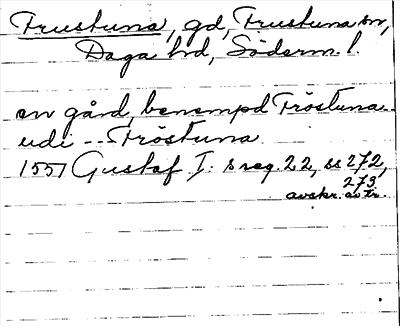 Frustuna, gd, Frustuna sn,
Daga hd, Söderm. l.
en gård, benempd Fröstuna
udi --- Fröstuna
1551 Gustaf I: s reg. 22, ss 272,
273.
avskr. av tr.